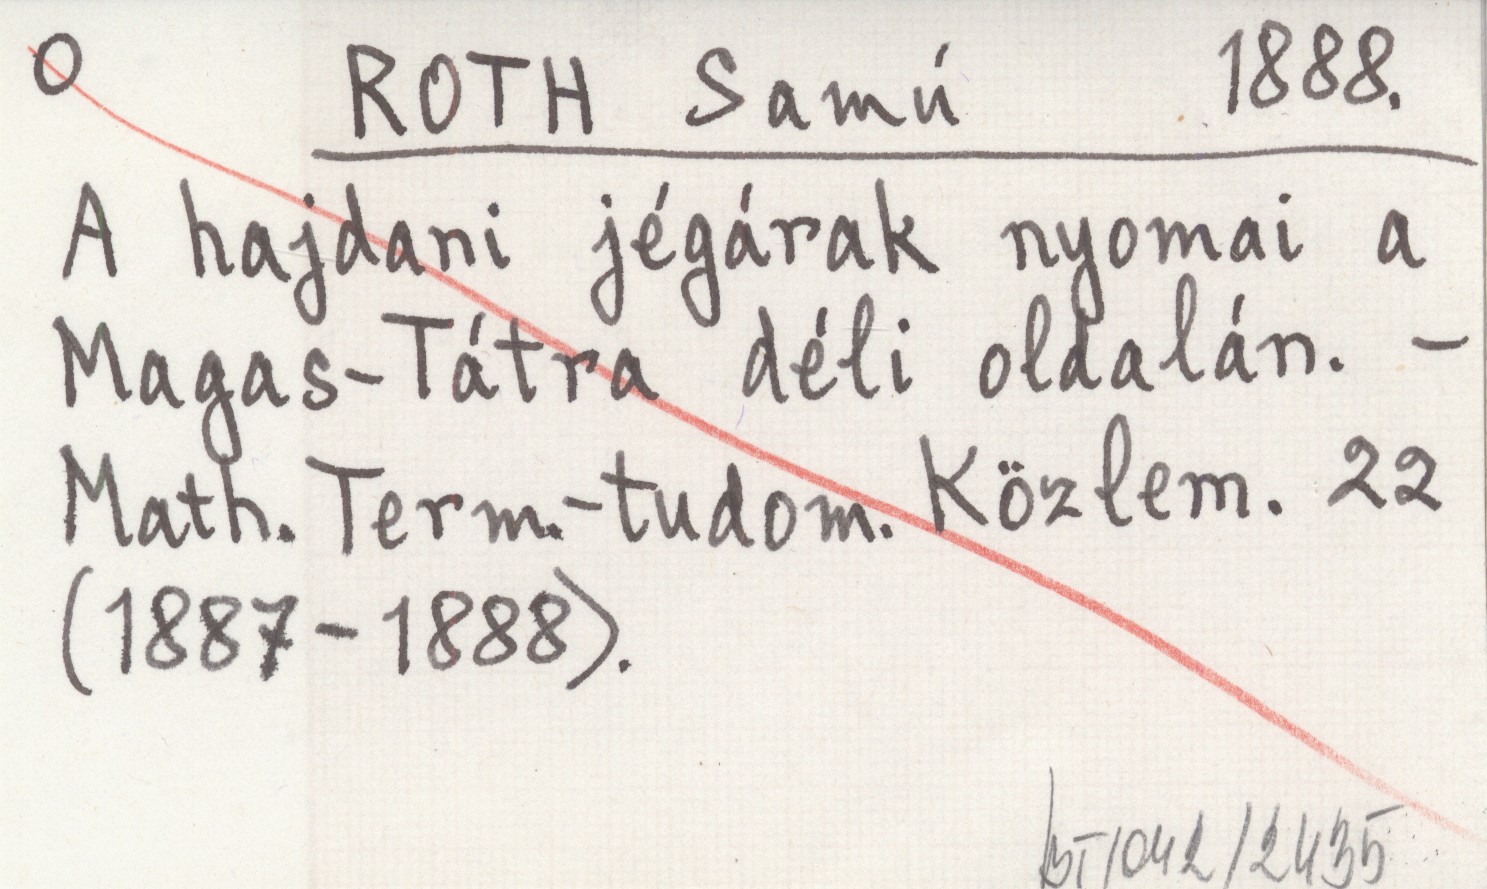 O ROTH Samú 1888.
A hajdani jégárak nyomai a
Magas-Tátra déli oldalán. -
Math. Term.-tudom. Közlem. 22
(1887-1888).
/042/2435